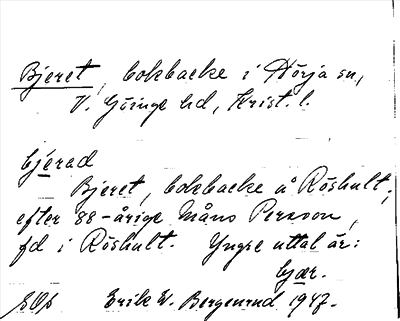 Bjeret, bokbacke i Hörja sn,
V. Göinge hd, Krist. l.
bjerad
Bjeret, bokbacke å Röshult;
efter 88-årige Måns Persson,
fd i Röshult. Yngre uttal är:
bjær.
Erik W. Bergenrud 1947.